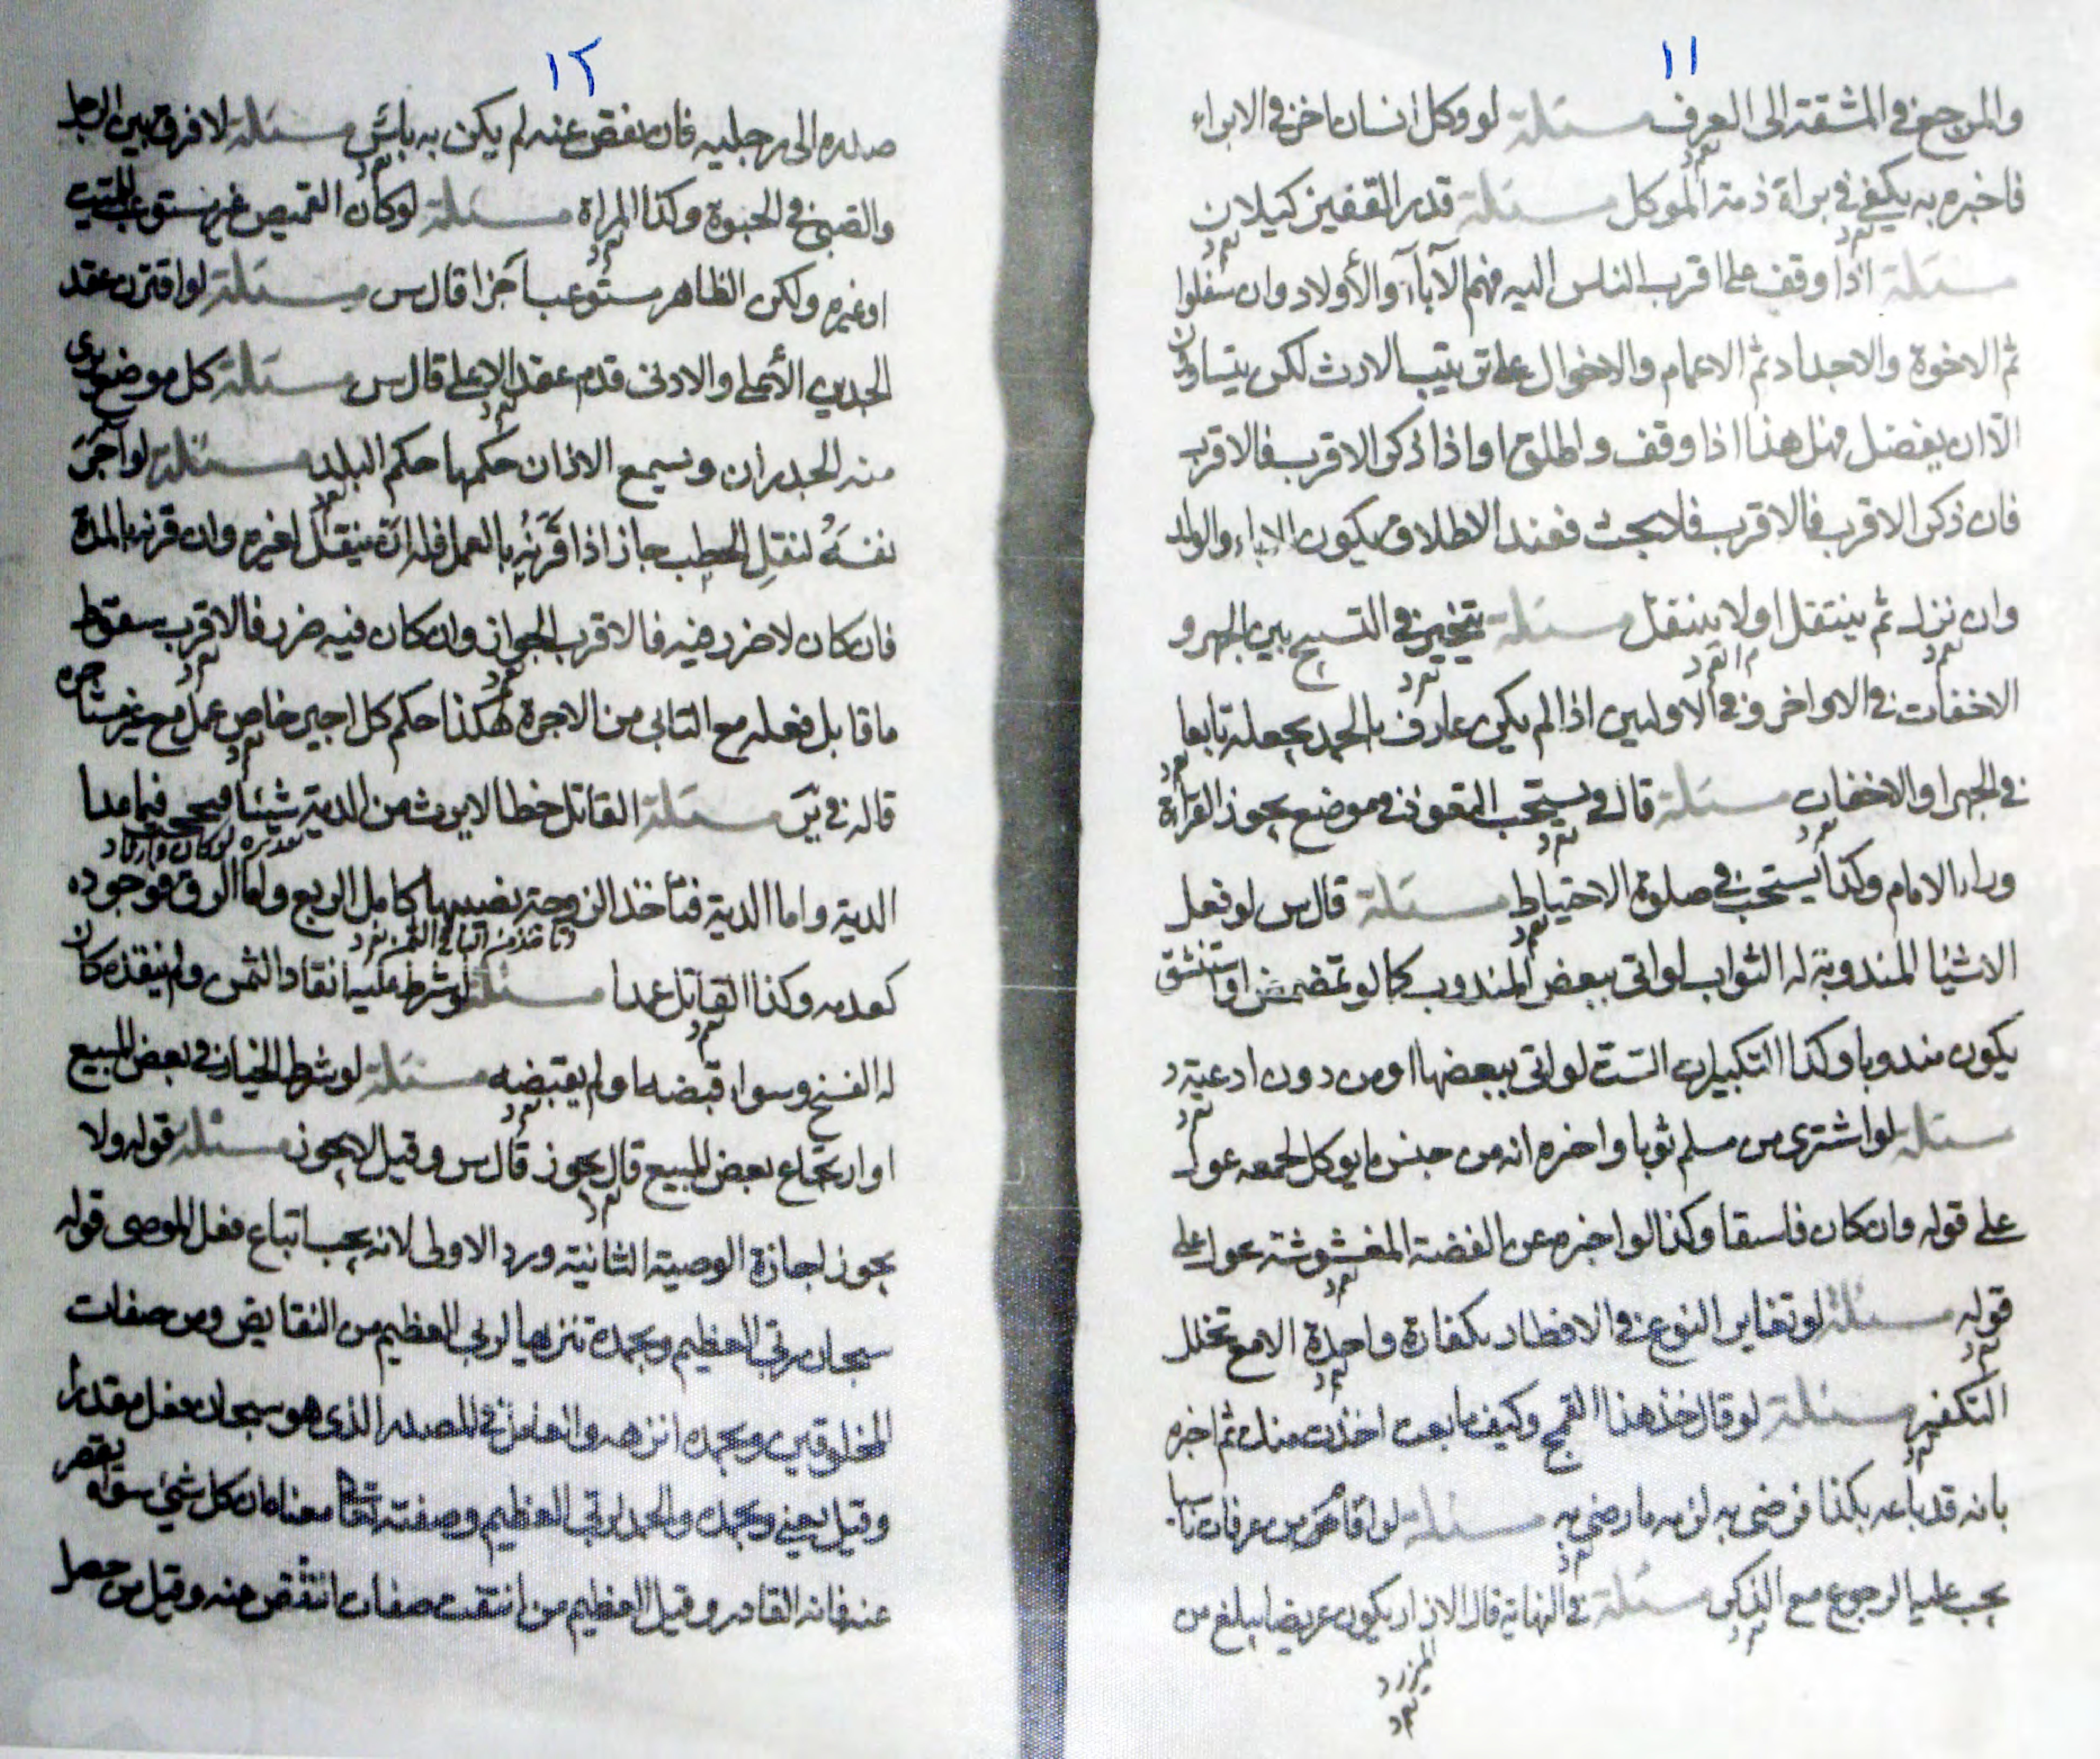 ١١
والمرجع في المشقة الى العرف مسئلة لو وكل انسان اخر في الابراء
فاخبره به يكفي في براة ذمة الموكل مسئلة قدر القفيز كيلان
مسئلة اذا وقف على اقرب الناس اليه فهم الآباء والأولاد وان سفلوا
ثم الاخوة والاجداد ثم الاعمام والاخوال على ترتيب الارث لكن يتساوون
الا ان يفضل فهل هذا اذا وقف واطلق او اذا ذكر الاقرب فالاقرب
فان ذكر الاقرب فالاقرب فلا بحث فعند الاطلاق يكون الاباء والولد
وان نزل ثم ينتقل او لا ينتقل مسئلة يتخير في التسبيح بين الجهر و
الاخفات في الاواخر و في الاوليين اذا لم يكن عارف بالحمد يجعله تابعا
في الجهر او الاخفات مسئلة قال و يستحب التعوذ في موضع يجوز القراءة
وراء الامام وكذا يستحب في صلوة الاحتياط مسئلة قال س لو فعل
الاشيا المندوبة له الثواب لو اتى ببعض المندوب كما لو تمضمض او استنشق
يكون مندوبا وكذا التكبيرات الستة لو اتى ببعضها او من دون ادعية
مسئلة لو اشترى من مسلم ثوبا واخبره انه من جنس ما يوكل لحمه عول
على قوله وان كان فاسقا وكذا لو اخبره عن الفضة المغشوشة عول على
قوله مسئلة لو تغاير النوع في الافطار بكفارة واحدة الا مع تخلل
التكفير مسئلة لو قال خذ هذا القمح وكيف ما بعت اخذت منك ثم اخبره
بانه قد باعه بكذا فرضى به لزمه ما رضى به مسئلة لو افاض من عرفات ناسيا
يجب عليه الرجوع مع الذكر مسئلة في النهاية قال الازار يكون عريضا يبلغ من
المئزر
١٢
صدره الى رجليه فان نقص عنه لم يكن به بأس مسئلة لا فرق بين الرجل
والصبي في الحبوة وكذا المراة مسئلة لو كان القميص غير مستوعب للميت
او غيره ولكن الظاهر مستوعبا اجزا قال س مسئلة لو اقترن عقد
الجدين الأعلى والادنى قدم عقد الاعلى قال س مسئلة كل موضع يرى
منه الجدران ويسمع الاذان حكمها حكم البلد مسئلة لو آجر
نفسه لنقل الحطب جاز اذا قرنه بالعمل فله ان ينقل لغيره وان قرنه بالمدة
فان كان لا ضرر فيه فالاقرب الجواز وان كان فيه ضرر فالاقرب سقوط
ما قابل فعله مع الثاني من الاجرة هكذا حكم كل اجير خاص عمل مع غير مستاجره
قاله في مسئلة القاتل خطا لا يرث من الدية شيئا فيما عدا
الدية واما الدية فتأخذ الزوجة نصيبها كاملا الربع واما الرق فوجوده
كعدمه وكذا القاتل عمدا مسئلة لو شرط عليه انقاد الثمن ولم ينقده كان
له الفسخ وسواء قبضه او لم يقبضه مسئلة لو شرط الخيار في بعض المبيع
او ارتجاع بعض المبيع قال يجوز قال س وقيل لا يجوز مسئلة قوله ولا
يجوز اجازة الوصية الثانية ورد الاولى لانه يجب اتباع فعل الموصى قوله
سبحان ربي العظيم وبحمده تنزيها لربي العظيم من النقايص ومن صفات
المخلوقين وبحمده انزهه والعامل في المصدر الذى هو سبحان فعل مقدر
وقيل يعني وبحمده والحمد لربي العظيم وصفته تعالى معناه ان كل شيئ سواه يقصر
عنه فانه القادر وقيل العظيم من انتفت صفات النقص عنه وقيل من حصل